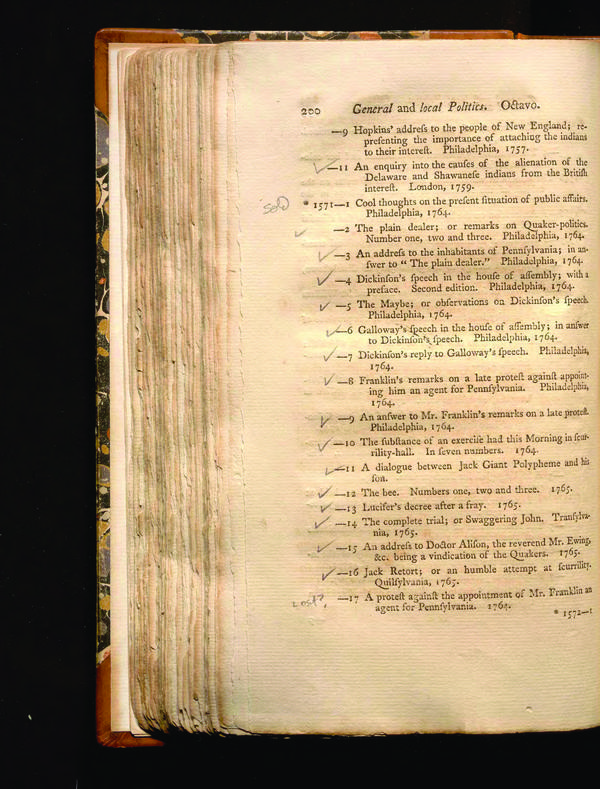 200 General and local Politics. Octavo.
—9 Hopkins' addreſs to the people of New England; re-
preſenting the importance of attaching the indians
to their intereſt. Philadelphia, 1757.
—11 An enquiry into the cauſes of the alienation of the
Delaware and Shawaneſe indians from the Britiſh
intereſt. London, 1759.
sold
* 1571—1 Cool thoughts on the preſent ſituation of public affairs.
Philadelphia, 1764.
—2 The plain dealer; or remarks on Quaker-politics.
Number one, two and three. Philadelphia, 1764.
—3 An addreſs to the inhabitants of Pennſylvania; in an-
ſwer to "The plain dealer." Philadelphia, 1764.
—4 Dickinſon's ſpeech in the houſe of aſſembly; with a
preface. Second edition. Philadelphia, 1764.
—5 The Maybe; or obſervations on Dickinſon's ſpeech.
Philadelphia, 1764.
—6 Galloway's ſpeech in the houſe of aſſembly; in anſwer
to Dickinſon's ſpeech. Philadelphia, 1764.
—7 Dickinſon's reply to Galloway's ſpeech. Philadelphia,
1764.
—8 Franklin's remarks on a late proteſt againſt appoint-
ing him an agent for Pennſylvania. Philadelphia,
1764.
—9 An anſwer to Mr. Franklin's remarks on a late proteſt.
Philadelphia, 1764.
—10 The ſubſtance of an exerciſe had this Morning in ſcur-
rility-hall. In ſeven numbers. 1764.
—11 A dialogue between Jack Giant Polypheme and his
ſon.
—12 The bee. Numbers one, two and three. 1765.
—13 Lucifer's decree after a fray. 1765.
—14 The complete trial; or Swaggering John. Tranſylva-
nia, 1765.
—15 An addreſs to Doctor Aliſon, the reverend Mr. Ewing,
&c. being a vindication of the Quakers. 1765.
—16 Jack Retort; or an humble attempt at ſcurrility.
Quilſylvania, 1765.
Lost?
—17 A proteſt againſt the appointment of Mr. Franklin an
agent for Pennſylvania. 1764.
* 1572—1